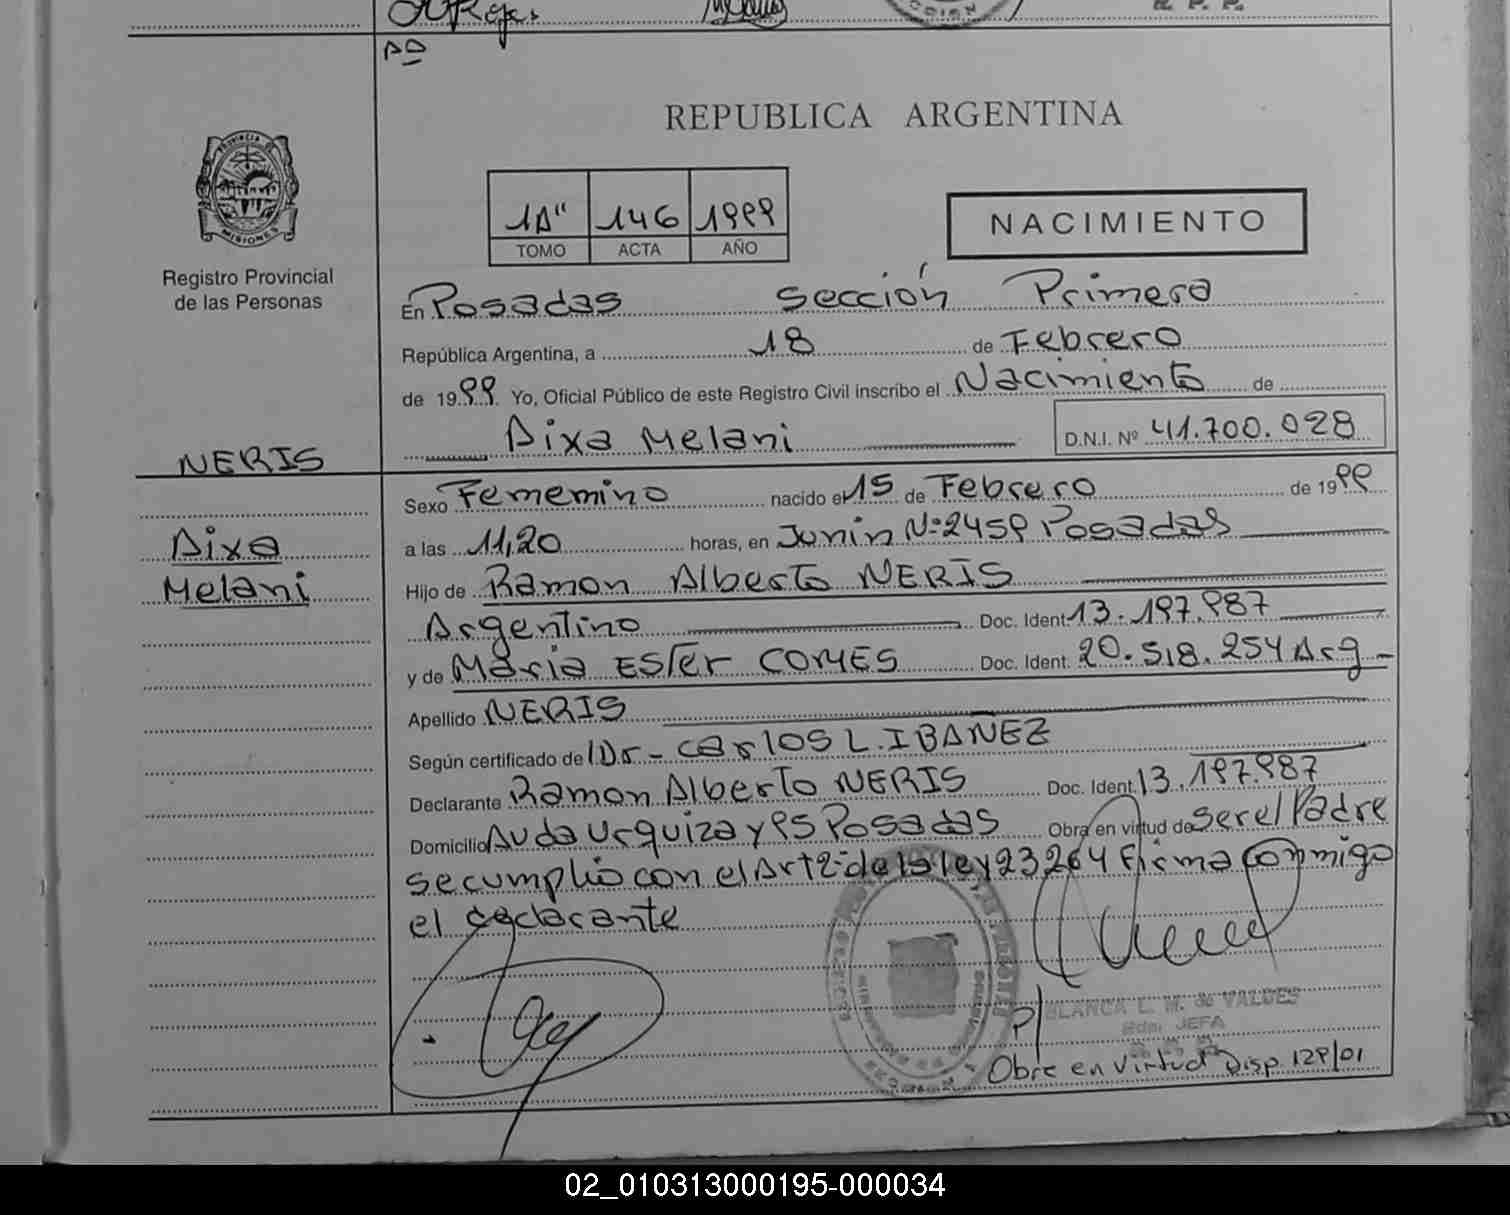 REPUBLICA ARGENTINA
PROVINCIA DE
MISIONES
Registro Provincial
de las Personas
1A" 146 1999
TOMO ACTA AÑO
NACIMIENTO
En Posadas Sección Primera
República Argentina, a 18 de Febrero
de 1999 Yo, Oficial Público de este Registro Civil inscribo el Nacimiento de
Aixa Melani D.N.I. Nº 41.700.028
NERIS
Aixa
Melani
Sexo Fememino nacido el 15 de Febrero de 1999
a las 11,20 horas, en Junin Nº 2459 Posadas
Hijo de Ramon Alberto NERIS
Argentino Doc. Ident 13.197.987
y de Maria ESTER COMES Doc. Ident. 20.518.254 Arg
Apellido NERIS
Según certificado de Dr- Carlos L. IBAÑEZ
Declarante Ramon Alberto NERIS Doc. Ident 13.197.987
Domicilio Avda Urquiza y 95 Posadas Obra en virtud de ser el Padre
se cumplio con el Art 2º de la ley 23264 Firma conmigo
el declarante
P/ BLANCA L. M. de VALDES
JEFA
Obre en virtud Disp. 129/01
02_010313000195-000034